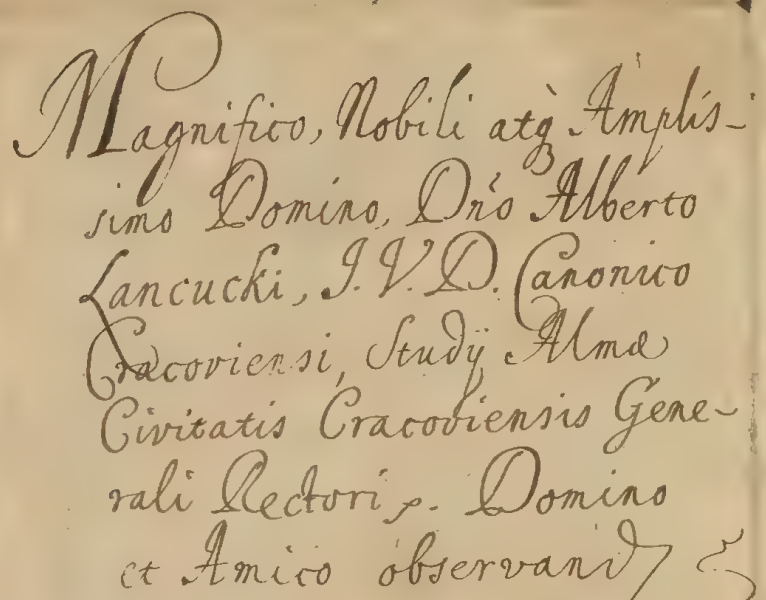 Magnifico, Nobili atq̀ Amplis-
simo Domino, Dn̄o Alberto
Lancucki, J. V. D. Canonico
Cracoviensi, Studij Almæ
Civitatis Cracoviensis Gene-
rali Rectori p. Domino
et Amico observand